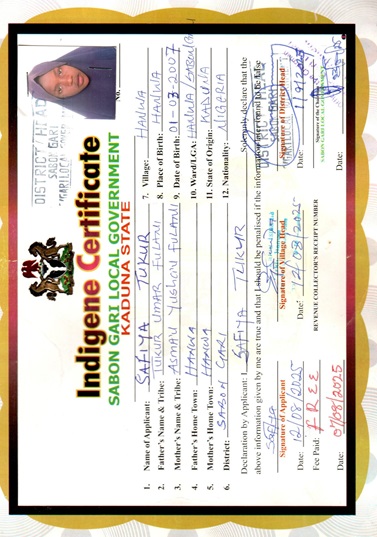 DISTRICT HEAD
SABON GARI
No.
Indigene Certificate
SABON GARI LOCAL GOVERNMENT
KADUNA STATE
1. Name of Applicant: SAFIYA TUKUR
7. Village: HANWA
2. Father's Name & Tribe: TUKUR UMAR FULANI
8. Place of Birth: HANWA
3. Mother's Name & Tribe: ASMAU YUSHAU FULANI
9. Date of Birth: 01-03-2007
4. Father's Home Town: HANWA
10. Ward/LGA: HANWA/
5. Mother's Home Town: HANWA
11. State of Origin: KADUNA
6. District: SABON GARI
12. Nationality: NIGERIA
Declaration by Applicant: I SAFIYA TUKUR Solemnly declare that the
above information given by me are true and that I should be penalised if the information
Safiya
Signature of Applicant
Signature of Village Head
Signature of District Head
Date: 12/08/2025
Date: 12/08/2025
Fee Paid: FREE
REVENUE COLLECTOR'S RECEIPT NUMBER
Date: 07/08/2025
Date: